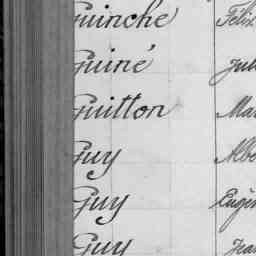 Guinche Féli
Guiné Jul
Guitton Ma
Guy Albe
Guy Eugèn
Guy Jea